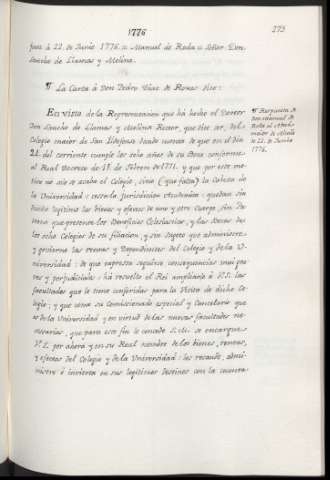 1776
273
juez à 22. de Junio 1776. = Manual de Roda = Señor Don
Sancho de Llamas y Molina.
¶ La Carta à Don Pedro Diaz de Roxas dice:
En vista de la Representacion que hà hecho el Doctor
Don Sancho de Llamas y Molina Rector, que dice ser, del
Colegio maior de San Ildefonso dando cuenta de que en el dia
21. del corriente cumple los ocho años de su Beca conforme
al Real Decreto de 15. de Febrero de 1771. y que por este mo-
tivo no solo se acaba el Colegio, sino (que falta) la Cabeza de
la Universidad: cesa la jurisdiccion Academica: quedan sin
dueño legitimo los bienes y efectos de uno y otro Cuerpo, sin Pa-
trono que presente los Beneficios Eclesiasticos, y las Becas de
los ocho Colegios de su filiacion, y sin Sugeto que administre,
y govierne las rentas y Dependientes del Colegio y de la U-
niversidad: de que expresa seguirse consequencias mui gra-
ves y perjudiciales: hà resuelto el Rei ampliarle à V.S. las
facultades que le tiene conferidas para la Visita de dicho Co-
legio; y que como su Comisionado especial y Cancelario que
es de la Universidad y en virtud de las nuevas facultades ne-
cesarias, que para este fin le concede S.M. se encargue
V.S. por ahora y en su Real nombre de los bienes, rentas,
y efectos del Colegio y de la Universidad: los recaude, admi-
nistre è invierta en sus legitimos destinos con la cuenta
¶ Respuesta de
Don Manuel de
Roda al
maior de Alcalà
de 22. de Junio
1776.